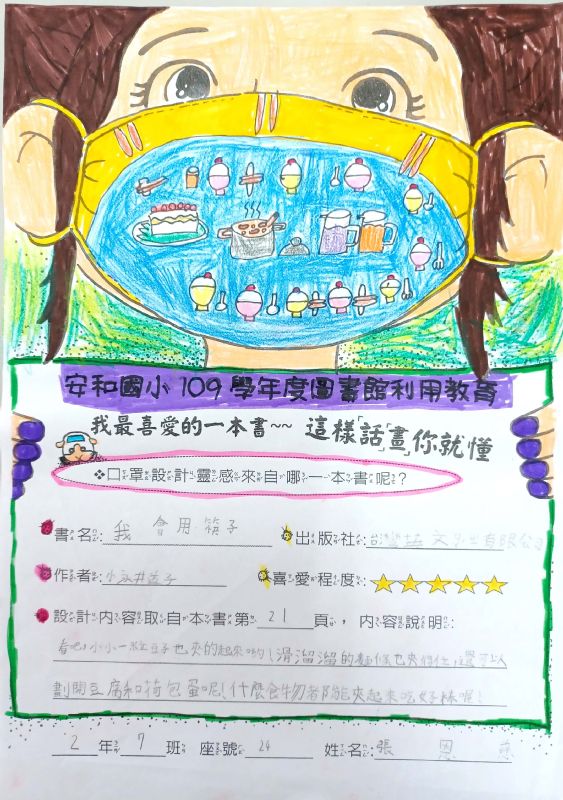 安和國小109學年度圖書館利用教育
我最喜愛的一本書~~ 這樣「話」畫,你就懂
❖口罩設計靈感來自哪一本書呢?
書名:我會用筷子 出版社:台灣 文 出 有限公司
作者:小永井道子 喜愛程度:
設計內容取自本書第21頁,內容說明:
看吧!小小一粒豆子也夾的起來喲!滑溜溜的麵條也夾得住,還可以
劃開豆腐和荷包蛋呢!什麼食物都能夾起來吃,好棒喔!
2年7班 座號24 姓名:張恩